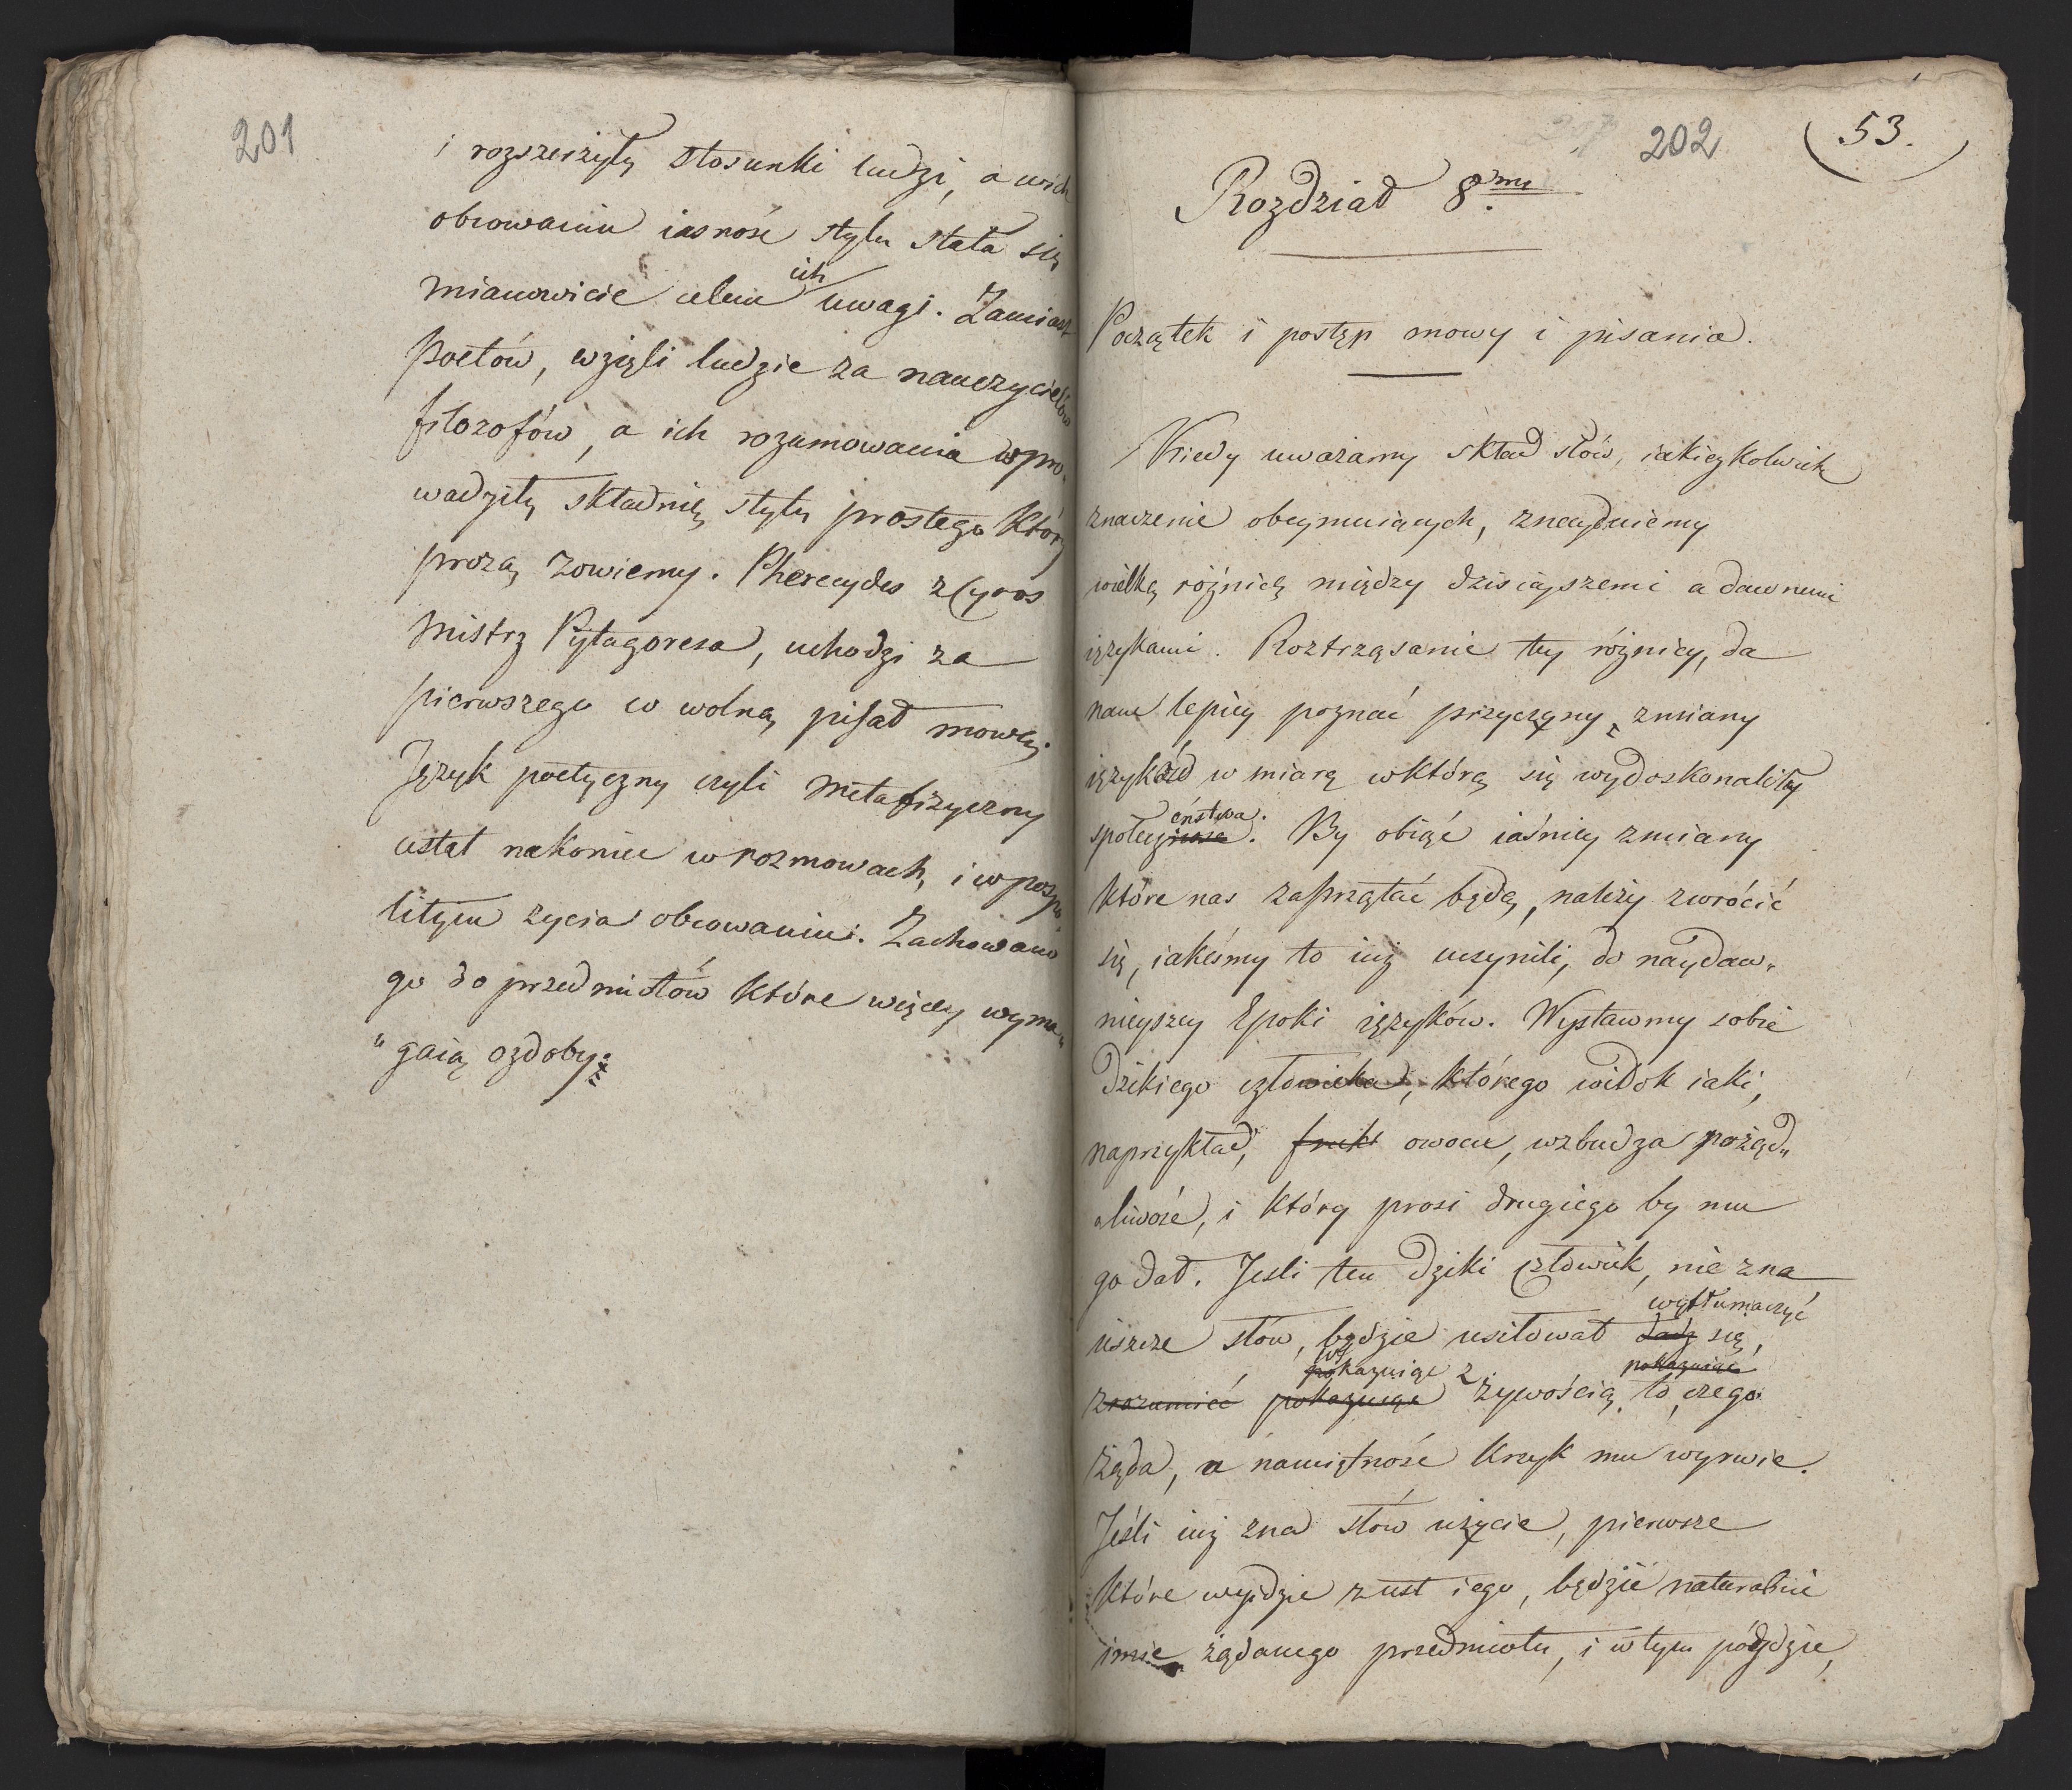 201
i rozszerzyły stosunki ludzi, a w ich
obcowaniu iasność stylu stała się
mianowicie celem ich uwagi. Zamiast
Poetów, wzięli ludzie za nauczycielów
filozofów, a ich rozumowania wpro-
wadziły składnię stylu prostego który
prozą zowiemy. Pherecydes z Cyros
Mistrz Pytagoresa, uchodzi za
pierwszego co wolną pisał mową;
Język poetyczny czyli metafizyczny
ustał nakoniec w rozmowach, i w pospo
litym życia obcowaniu. Zachowano
go do przedmiotów które więcey wyma„
„gaią ozdoby.
202
(53.)
Rozdział 8my
Początek i postęp mowy i pisania.
Kiedy uważamy skład słów, iakieykolwiek
znaczenie obeymuiących, znaydziemy
wielką różnicę między dzisieyszemi a dawnemi
ięzykami. Roztrząsanie tey różnicy, da
nam lepiey poznać przyczyny zmiany
ięzyków w miarę w którą się wydoskonaliły
społeczeństwa. By obiąć iaśniey zmiany
które nas zaprzątać będą, należy zwrócić
się, iakeśmy to iuż uczynili, do naydaw„
nieyszey Epoki ięzyków. Wystawmy sobie
Dzikiego człowieka, którego widok iaki,
naprzykład, frukt owocu, wzbudza pożąd„
„liwość, i który prosi drugiego by mu
go dał. Jeśli ten dziki człowiek, nie zna
wytłumaczyć
ieszcze słów, będzie usiłował dadz się,
wskazuiąc z pokazuiąc
zrozumieć pokazuiąc żywością to, czego
żąda, a namiętność krzyk mu wyrwie.
Jeśli iuż zna słów użycie, pierwsze
które wyidzie z ust iego, będzie naturalnie
imie żądanego przedmiotu, i w tym póydzie,